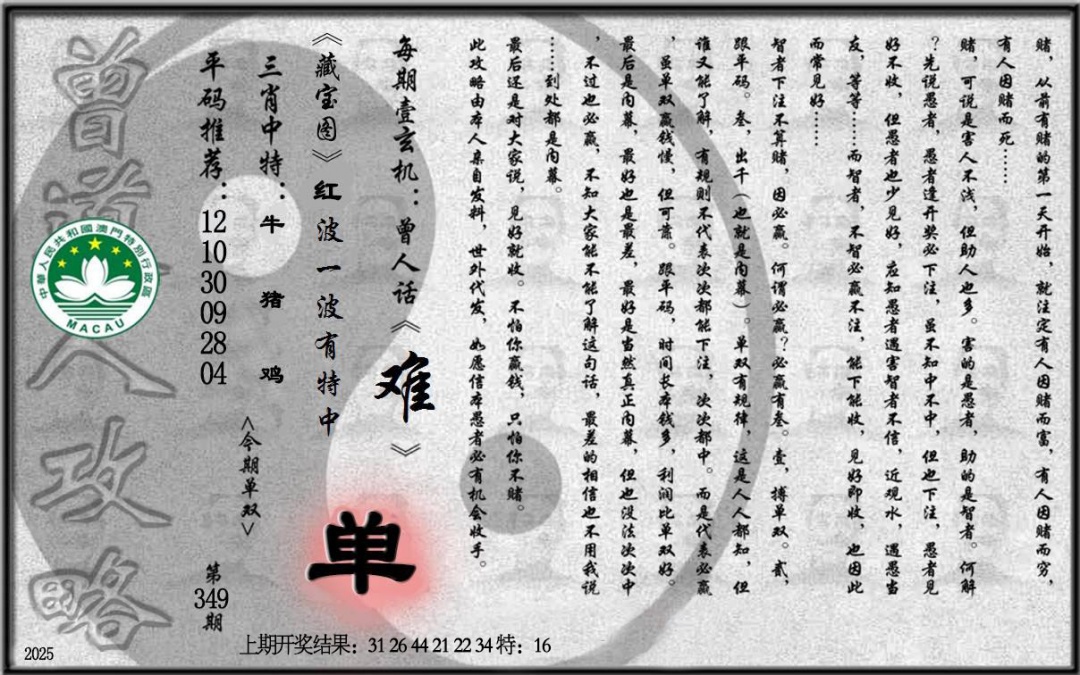 赌，从前有赌的第一天开始，就注定有人因赌而富，有人因赌而穷，
有人因赌而死……
赌，可说是害人不浅，但助人也多。害的是愚者，助的是智者。何解
？先说愚者，愚者逢开奖必下注，虽不知中不中，但也下注，愚者见
好不收，但愚者也少见好，应知愚者遇害智者不信，近观水，遇愚当
友，等等……而智者，不智必赢不注，能下能收，见好即收，也因此
而常见好……
智者下注不算赌，因必赢。何谓必赢？必赢有叁。壹，搏单双。贰，
跟平码。叁，出千（也就是内幕）。单双有规律，这是人人都知，但
谁又能了解，有规则不代表次次都能下注，次次都中。而是代表必赢
，虽单双赢钱慢，但可靠。跟平码，时间长本钱多，利润比单双好。
最后是内幕，最好也是最差，最好是当然真正内幕，但也没法次次中
，不过也必赢，不知大家能不能了解这句话，最差的相信也不用我说
……到处都是内幕。
最后还是对大家说，见好就收。不怕你赢钱，只怕你不赌。
此攻略由本人亲自发料，世外代发，如愿信本愚者必有机会收手。
每期壹玄机：曾人话《难》
《藏宝图》红波一波有特中
单
三肖中特：牛 猪 鸡
<今期单双>
平码推荐：12 10 30 09 28 04
第349期
曾道人攻略
中華人民共和國澳門特別行政區
MACAU
上期开奖结果：31 26 44 21 22 34 特：16
2025